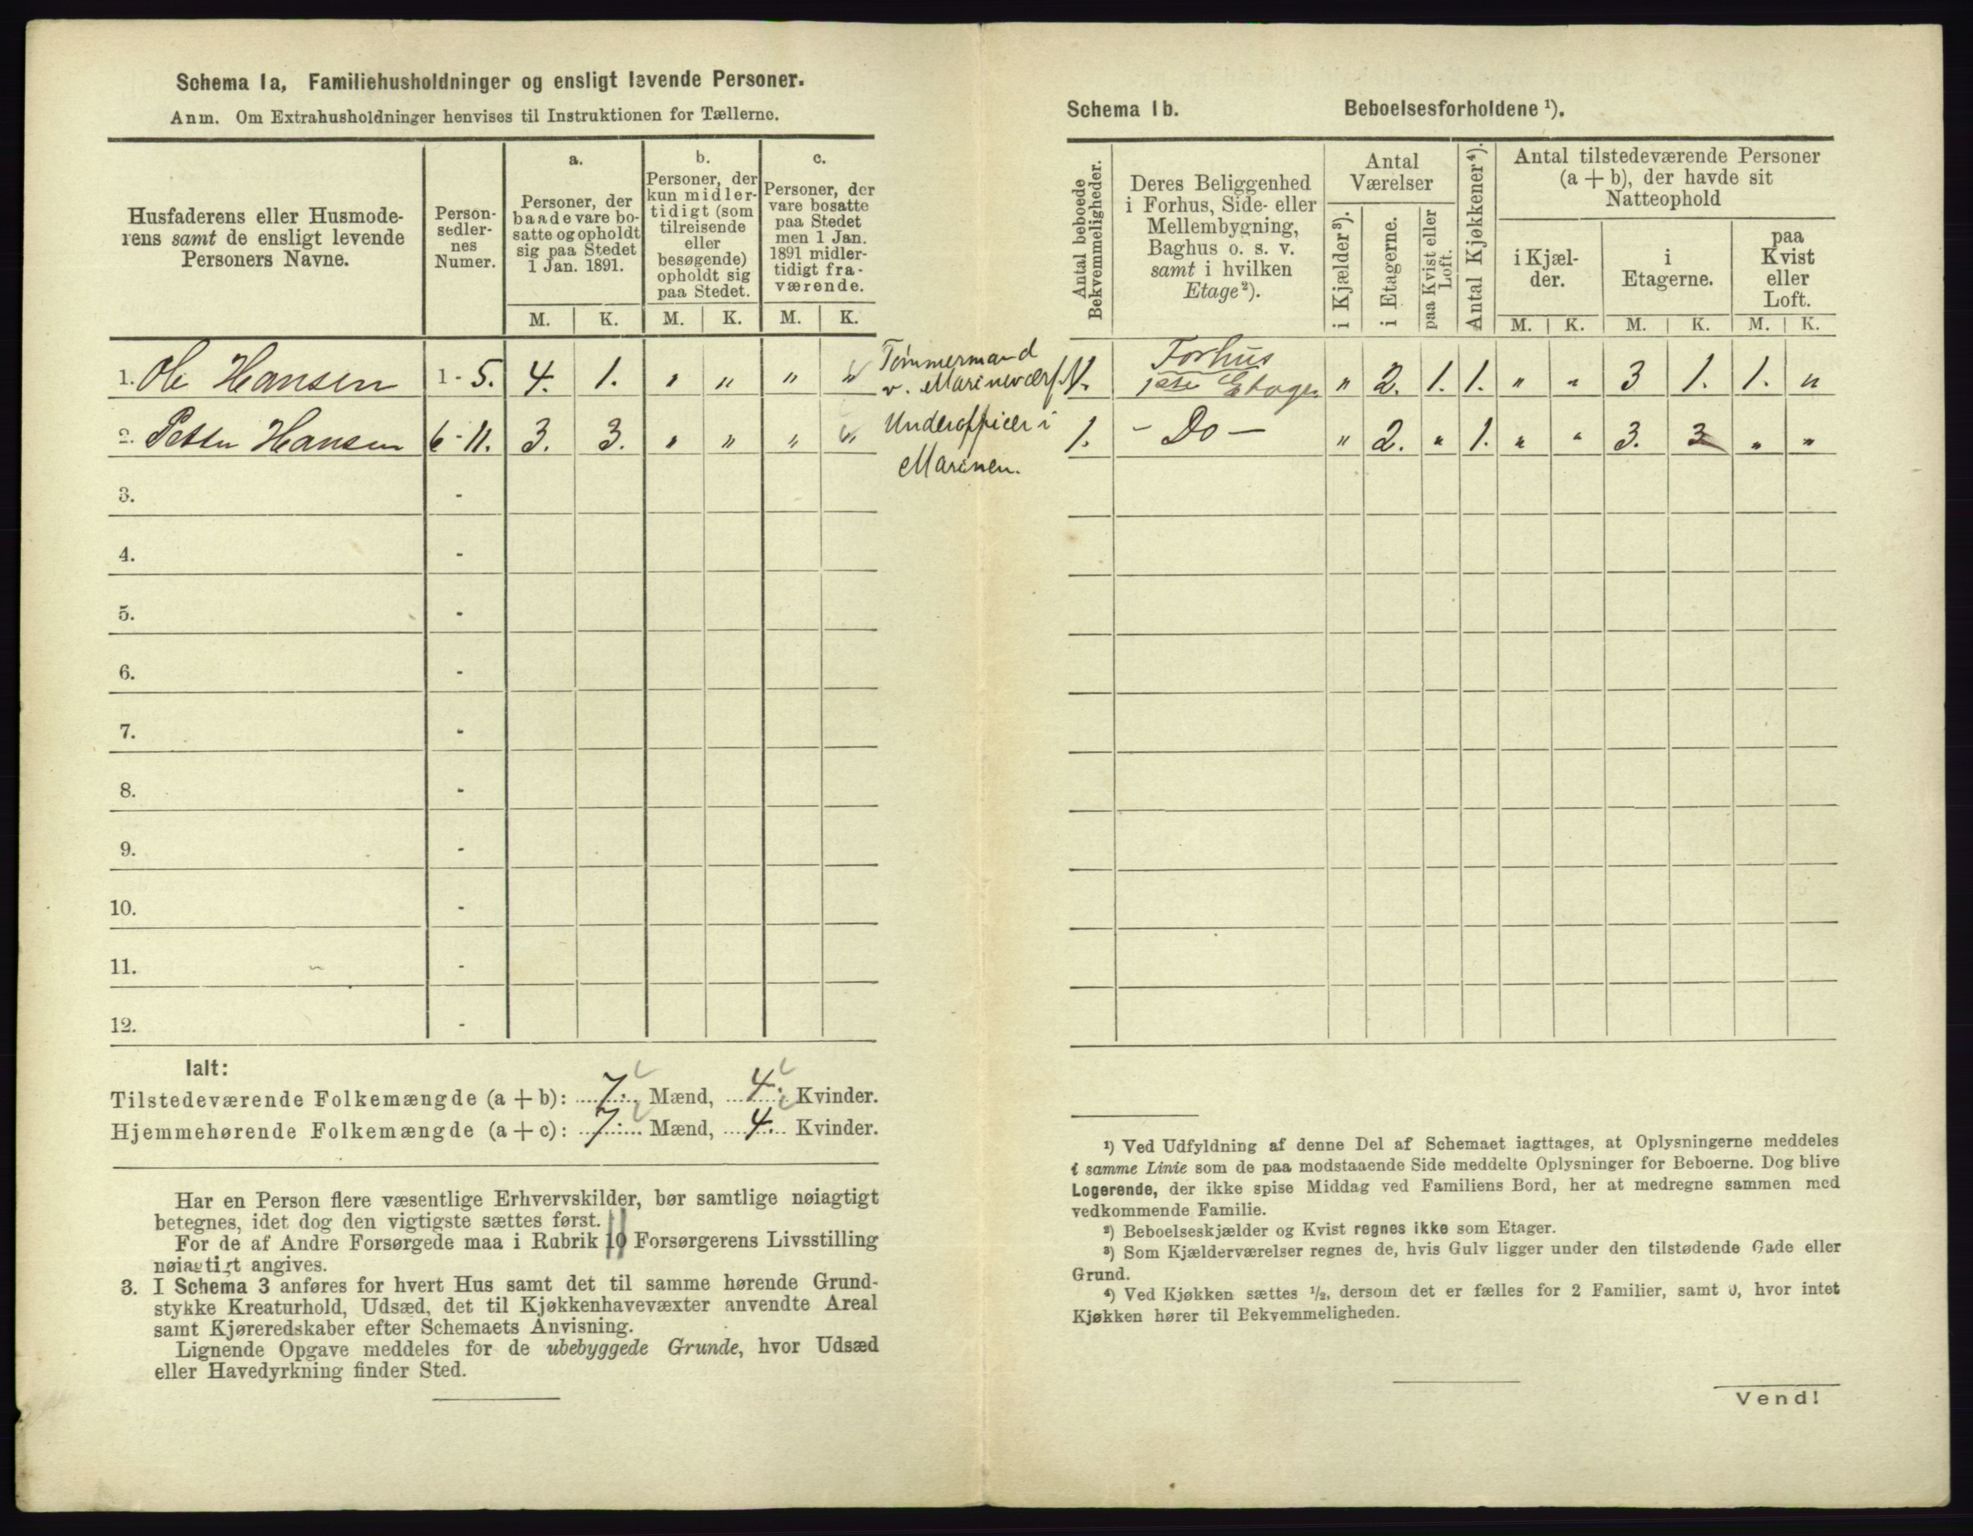 Schema 1a, Familiehusholdninger og ensligt levende Personer.
Anm. Om Extrahusholdninger henvises til Instruktionen for Tællerne.
Husfaderens eller Husmode-
rens samt de ensligt levende
Personers Navne.
Person-
sedler-
nes
Numer.
a.
Personer, der
baade vare bo-
satte og opholdt
sig paa Stedet
1 Jan. 1891.
b.
Personer, der
kun midler-
tidigt (som
tilreisende
eller
besøgende)
opholdt sig
paa Stedet.
c.
Personer, der
vare bosatte
paa Stedet
men 1 Jan.
1891 midler-
tidigt fra-
værende.
M. K. M. K. M. K.
1. Ole Hansen 1 - 5. 4. 1. " " " " Tømmermand
v. Marineværf.
2. Petter Hansen 6 - 11. 3. 3. " " " " Underofficer i
Marinen.
3. -
4. -
5. -
6. -
7. -
8. -
9. -
10. -
11. -
12. -
Ialt:
Tilstedeværende Folkemængde (a + b): 7. Mænd, 4. Kvinder.
Hjemmehørende Folkemængde (a + c): 7. Mænd, 4. Kvinder.
Har en Person flere væsentlige Erhvervskilder, bør samtlige nøiagtigt
betegnes, idet dog den vigtigste sættes først.
11
For de af Andre Forsørgede maa i Rubrik 10 Forsørgerens Livsstilling
nøiagtigt angives.
3. I Schema 3 anføres for hvert Hus samt det til samme hørende Grund-
stykke Kreaturhold, Udsæd, det til Kjøkkenhavevæxter anvendte Areal
samt Kjøreredskaber efter Schemaets Anvisning.
Lignende Opgave meddeles for de ubebyggede Grunde, hvor Udsæd
eller Havedyrkning finder Sted.
Schema 1b. Beboelsesforholdene ¹).
Antal beboede
Bekvemmeligheder.
Deres Beliggenhed
i Forhus, Side- eller
Mellembygning,
Baghus o. s. v.
samt i hvilken
Etage²).
Antal
Værelser
i Kjælder³).
i Etagerne.
paa Kvist eller
Loft.
Antal Kjøkkener⁴).
Antal tilstedeværende Personer
(a + b), der havde sit
Natteophold
i Kjæl-
der.
i
Etagerne.
paa
Kvist
eller
Loft.
M. K. M. K. M. K.
1. Forhus
1ste Etage " 2. 1. 1. " " 3 1. 1. "
1. - Do - " 2. " 1. " " 3. 3 " "
¹) Ved Udfyldning af denne Del af Schemaet iagttages, at Oplysningerne meddeles
i samme Linie som de paa modstaaende Side meddelte Oplysninger for Beboerne. Dog blive
Logerende, der ikke spise Middag ved Familiens Bord, her at medregne sammen med
vedkommende Familie.
²) Beboelseskjælder og Kvist regnes ikke som Etager.
³) Som Kjælderværelser regnes de, hvis Gulv ligger under den tilstødende Gade eller
Grund.
⁴) Ved Kjøkken sættes ¹/₂, dersom det er fælles for 2 Familier, samt 0, hvor intet
Kjøkken hører til Bekvemmeligheden.
Vend!